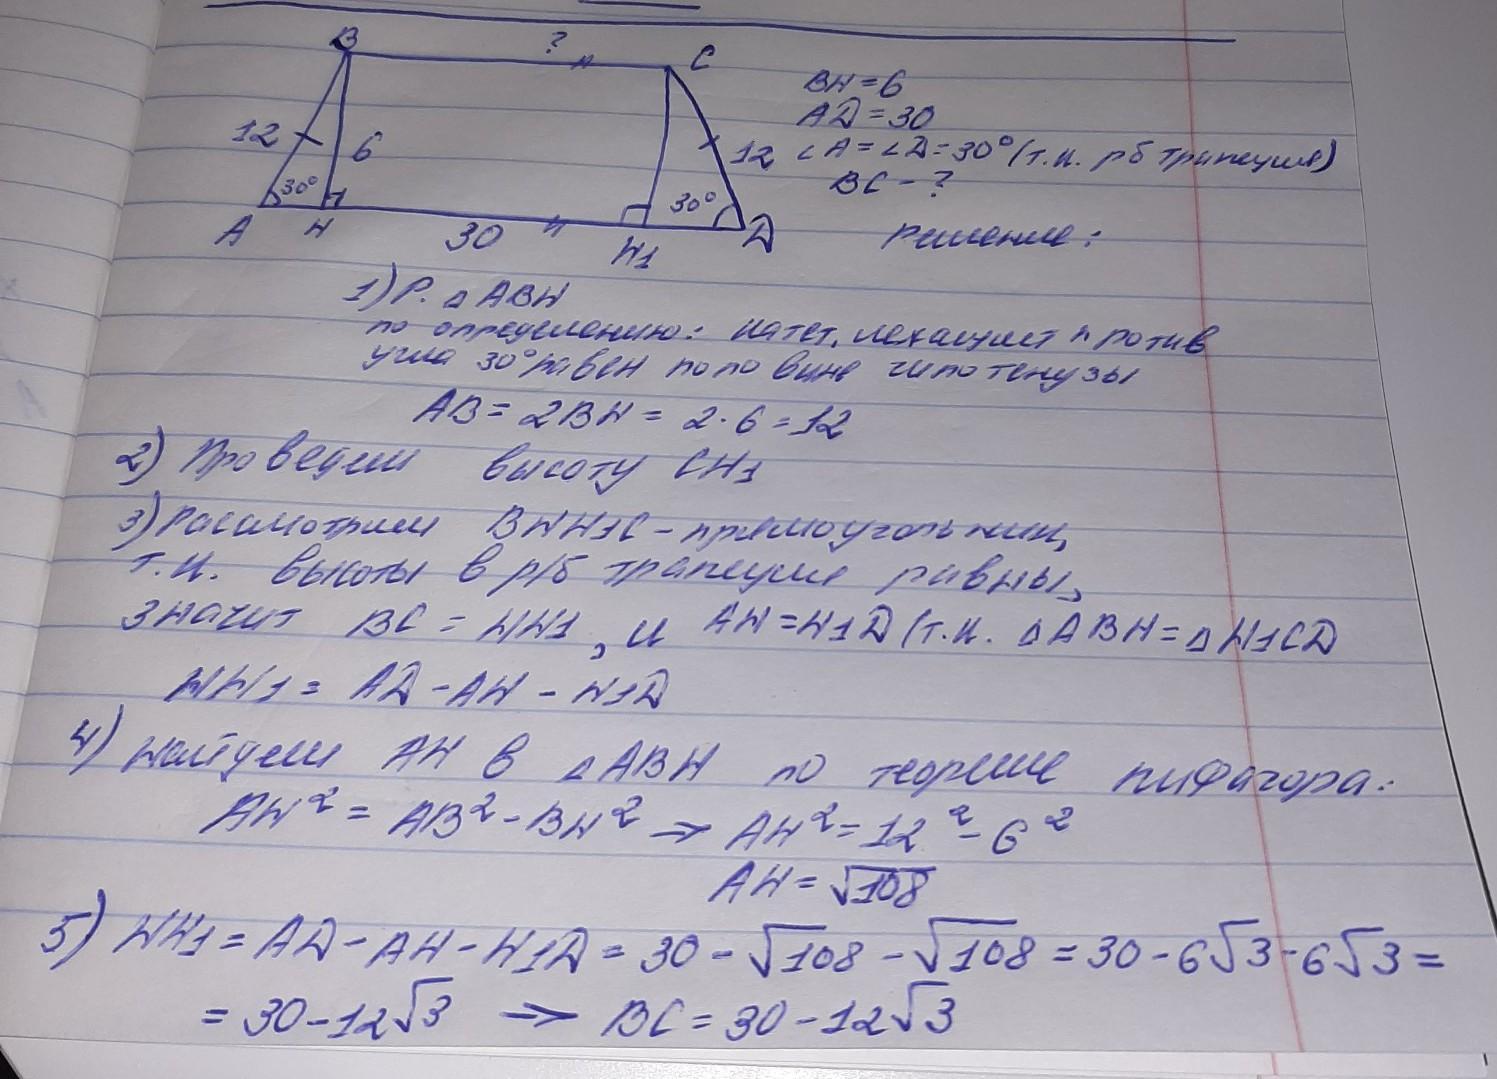 B ? C
12 6 12
30° 30°
A H 30 H1 D
BH = 6
AD = 30
∠A = ∠D = 30° (т.к. рб трапеция)
BC - ?
Решение:
1) Р. △ABH
по определению: катет, лежащий против
угла 30° равен половине гипотенузы
AB = 2BH = 2·6 = 12
2) Проведем высоту CH1
3) Рассмотрим BHH1C - прямоугольник,
т.к. высоты в р/б трапеции равны,
значит BC = HH1, и AH = H1D (т.к. △ABH = △H1CD
HH1 = AD - AH - H1D
4) Найдем AH в △ABH по теореме Пифагора:
AH² = AB² - BH² ⇒ AH² = 12² - 6²
AH = √108
5) HH1 = AD - AH - H1D = 30 - √108 - √108 = 30 - 6√3 - 6√3 =
= 30 - 12√3 ⇒ BC = 30 - 12√3